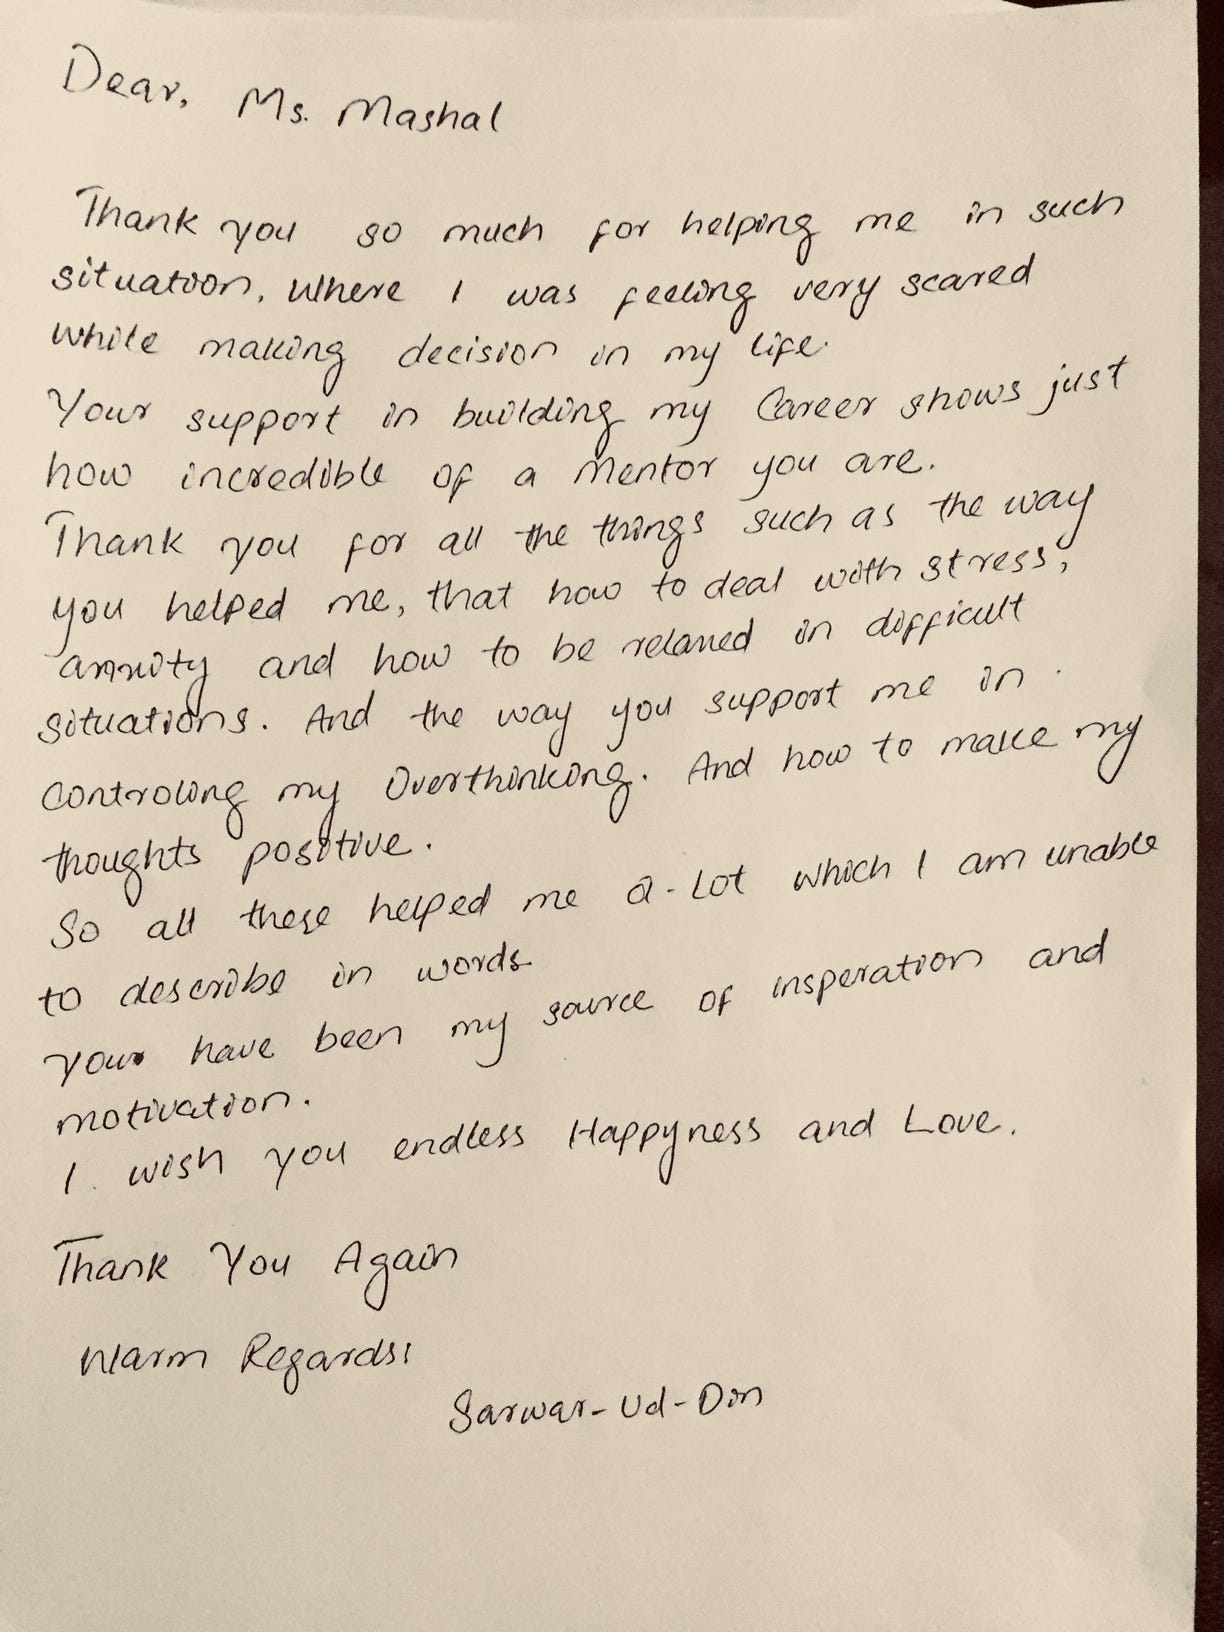 Dear, Ms. Mashal
Thank you so much for helping me in such
situation, where I was feeling very scared
while making decision in my life.
Your support in building my Career shows just
how incredible of a mentor you are.
Thank you for all the things such as the way
you helped me, that how to deal with stress,
anxity and how to be relaxed in difficult
situations. And the way you support me in
controling my Overthinking. And how to make my
thoughts positive.
So all these helped me a-Lot which I am unable
to describe in words
your have been my source of insperation and
motivation.
I wish you endless Happyness and Love.
Thank You Again
Warm Regards:
Sarwar-Ud-Din